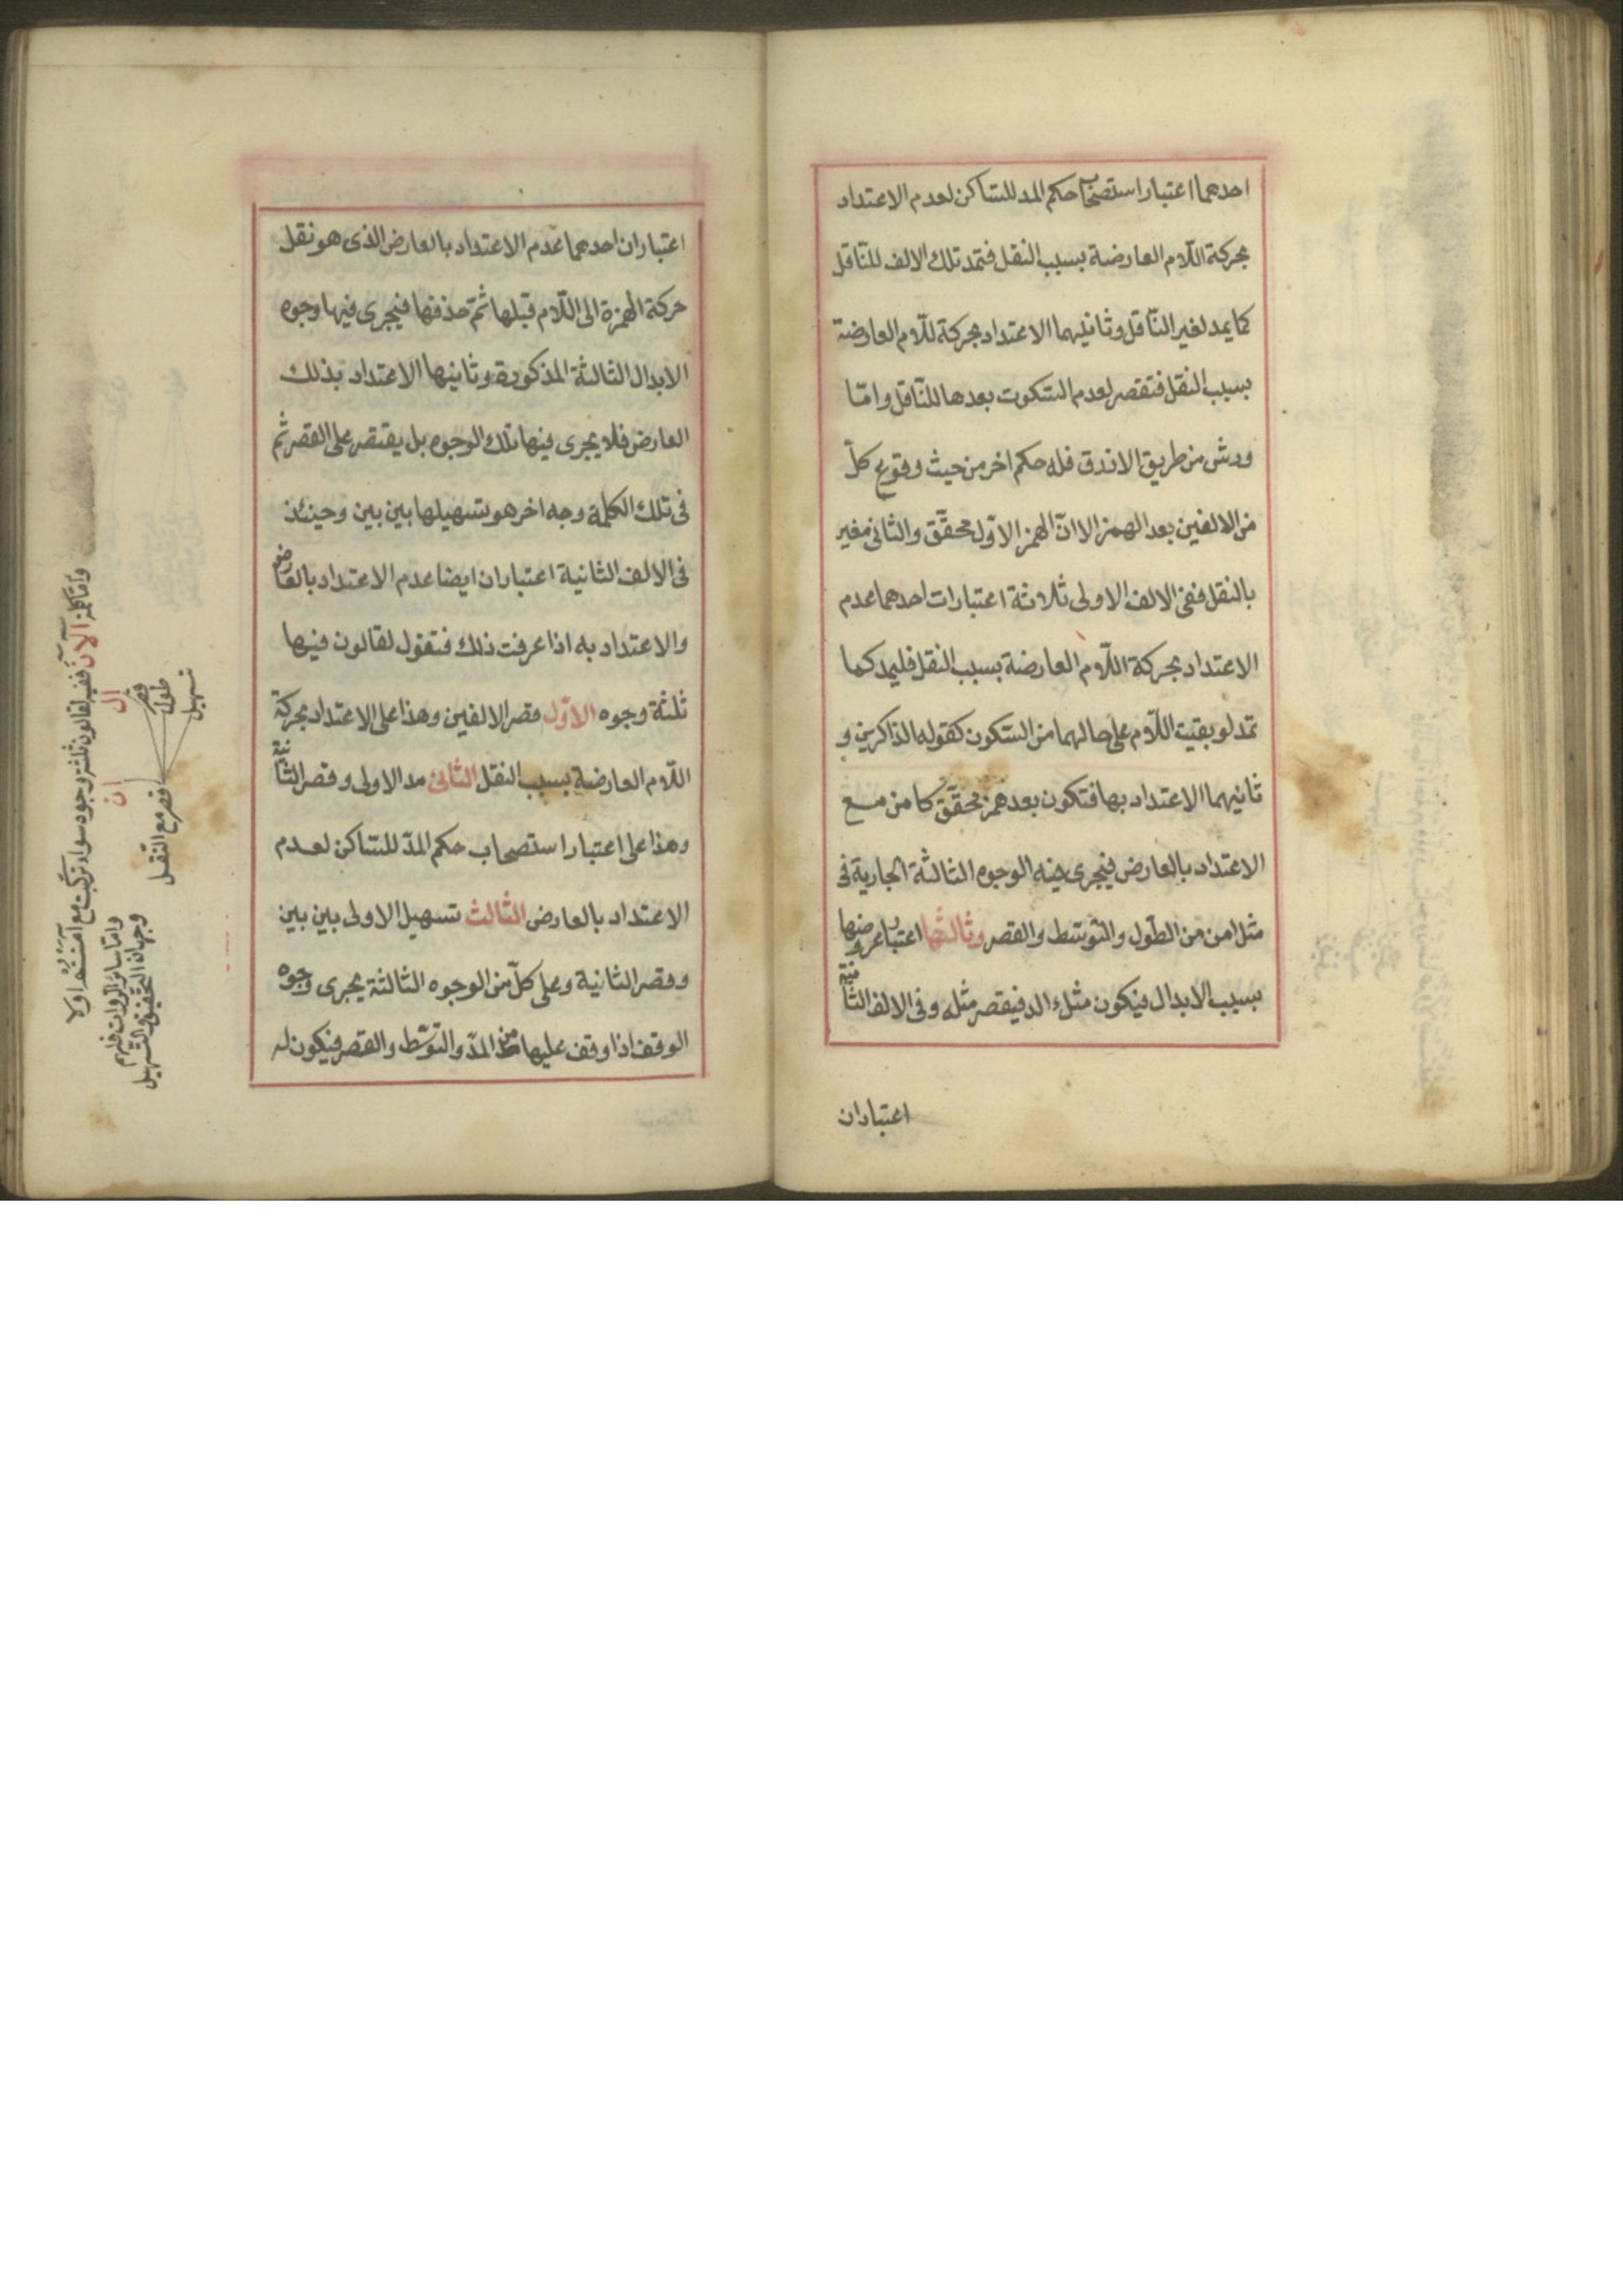 احدهما اعتبار استصحاب حكم المد للساكن لعدم الاعتداد
بحركة اللّام العارضة بسبب النقل فتمد تلك الالف للنّاقل
كما يمد لغير النّاقل وثانيهما الاعتداد بحركة للّام العارضة
بسبب النقل فتقصر لعدم السّكوت بعدها للنّاقل وامّا
ورش من طريق الازرق فله حكم اخر من حيث وقوع كلّ
من الالفين بعد الهمز الا انّ الهمز الاوّل محقّق والثانى مغير
بالنقل ففى الالف الاولى ثلاثة اعتبارات احدهما عدم
الاعتداد بحركة اللّام العارضة بسبب النقل فليمد كما
تمد لو بقيت اللّام على حالهما من السّكون كقوله الذاكرين و
ثانيهما الاعتداد بها فتكون بعد همز محقّق كامن مع
الاعتداد بالعارض فيجرى فيه الوجوه الثالثة الجارية فى
مثل امن من الطّول والتّوسّط والقصر وثالثها اعتبار عروضها
بسبب الابدال فيكون مثل ءالد فيقصر مثله وفى الالف الثّانية
اعتباران
اعتباران احدهما عدم الاعتداد بالعارض الذى هو نقل
حركة الهمزة الى اللّام قبلها ثمّ حذفها فيجرى فيها وجوه
الابدال الثالثة المذكورة وثانيها الاعتداد بذلك
العارض فلا يجرى فيها تلك الوجوه بل يقتصر على القصر ثم
فى تلك الكلمة وجه اخر هو تسهيلها بين بين وحينئذ
فى الالف الثانية اعتباران ايضا عدم الاعتداد بالعارض
والاعتداد به اذا عرفت ذلك فنقول لقالون فيها
ثلثة وجوه الاوّل قصر الالفين وهذا على الاعتداد بحركة
اللّام العارضة بسبب النقل الثانى مد الاولى وقصر الثّانية
وهذا على اعتبار استصحاب حكم المدّ للسّاكن لعدم
الاعتداد بالعارض الثالث تسهيل الاولى بين بين
وقصر الثانية وعلى كلّ من الوجوه الثالثة يجرى وجوه
الوقف اذا وقف عليها من المدّ والتوسّط والقصر فيكون له
وامّا كلمة آلآن ففيه لقالون ثلثة وجوه سواء تركّبت مع آمنتم اولا
ال
ان
قصر
طول
تسهيل
قصر مع النّقل
وامّا سائر الرواة فلهم
وجهان التّحقيق والتّسهيل